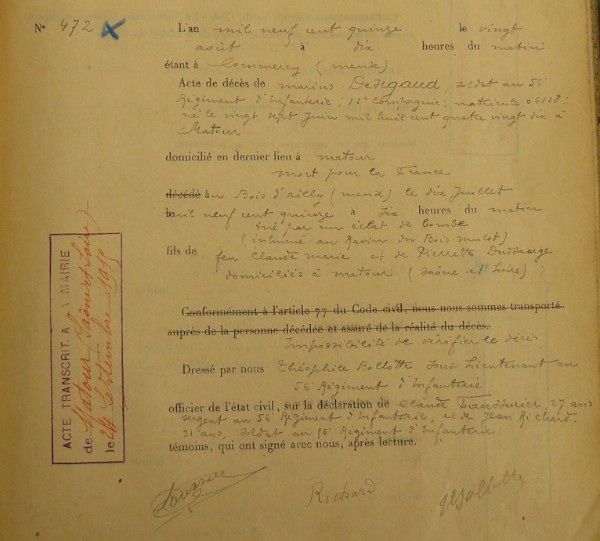 No 472
L'an mil neuf cent quinze le vingt
août à dix heures du matin
étant à Commercy (meuse)
Acte de décès de marius Desigaud, soldat au 56e
Régiment d'Infanterie, 11e Compagnie; matricule 06118;
né le vingt sept Juin mil huit cent quatre vingt dix à
Matour
domicilié en dernier lieu à matour
mort pour la France
décédé au Bois d'ailly (meuse) le dix Juillet
mil neuf cent quinze à dix heures du matin
tué par un éclat de bombe
(inhumé au Ravin du Bois mulot)
fils de feu Claude marie et de Pierrette
domiciliés à matour (Saône et Loire)
Conformément à l'article 77 du Code civil, nous nous sommes transporté
auprès de la personne décédée et assuré de la réalité du décès.
Impossibilité de vérifier le décès
Dressé par nous Théophile Bollotte sous Lieutenant au
56e Régiment d'Infanterie
officier de l'état civil, sur la déclaration de Claude 27 ans
sergent au 56e Régiment d'Infanterie, et de Jean Richard
21 ans, soldat au 56 Régiment d'Infanterie
témoins, qui ont signé avec nous, après lecture.
Richard
ACTE TRANSCRIT A LA MAIRIE
de Matour (Saône et Loire)
le Septembre 1915